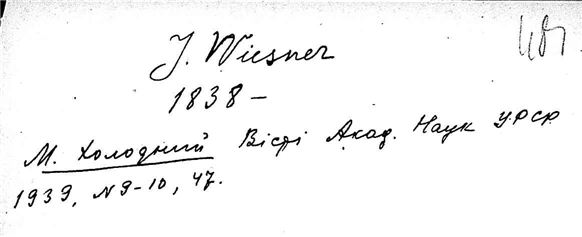 J. Wiesner
1838 –
М. Холодний Вісті Акад. Наук УРСР
1939, N 9-10, 47.